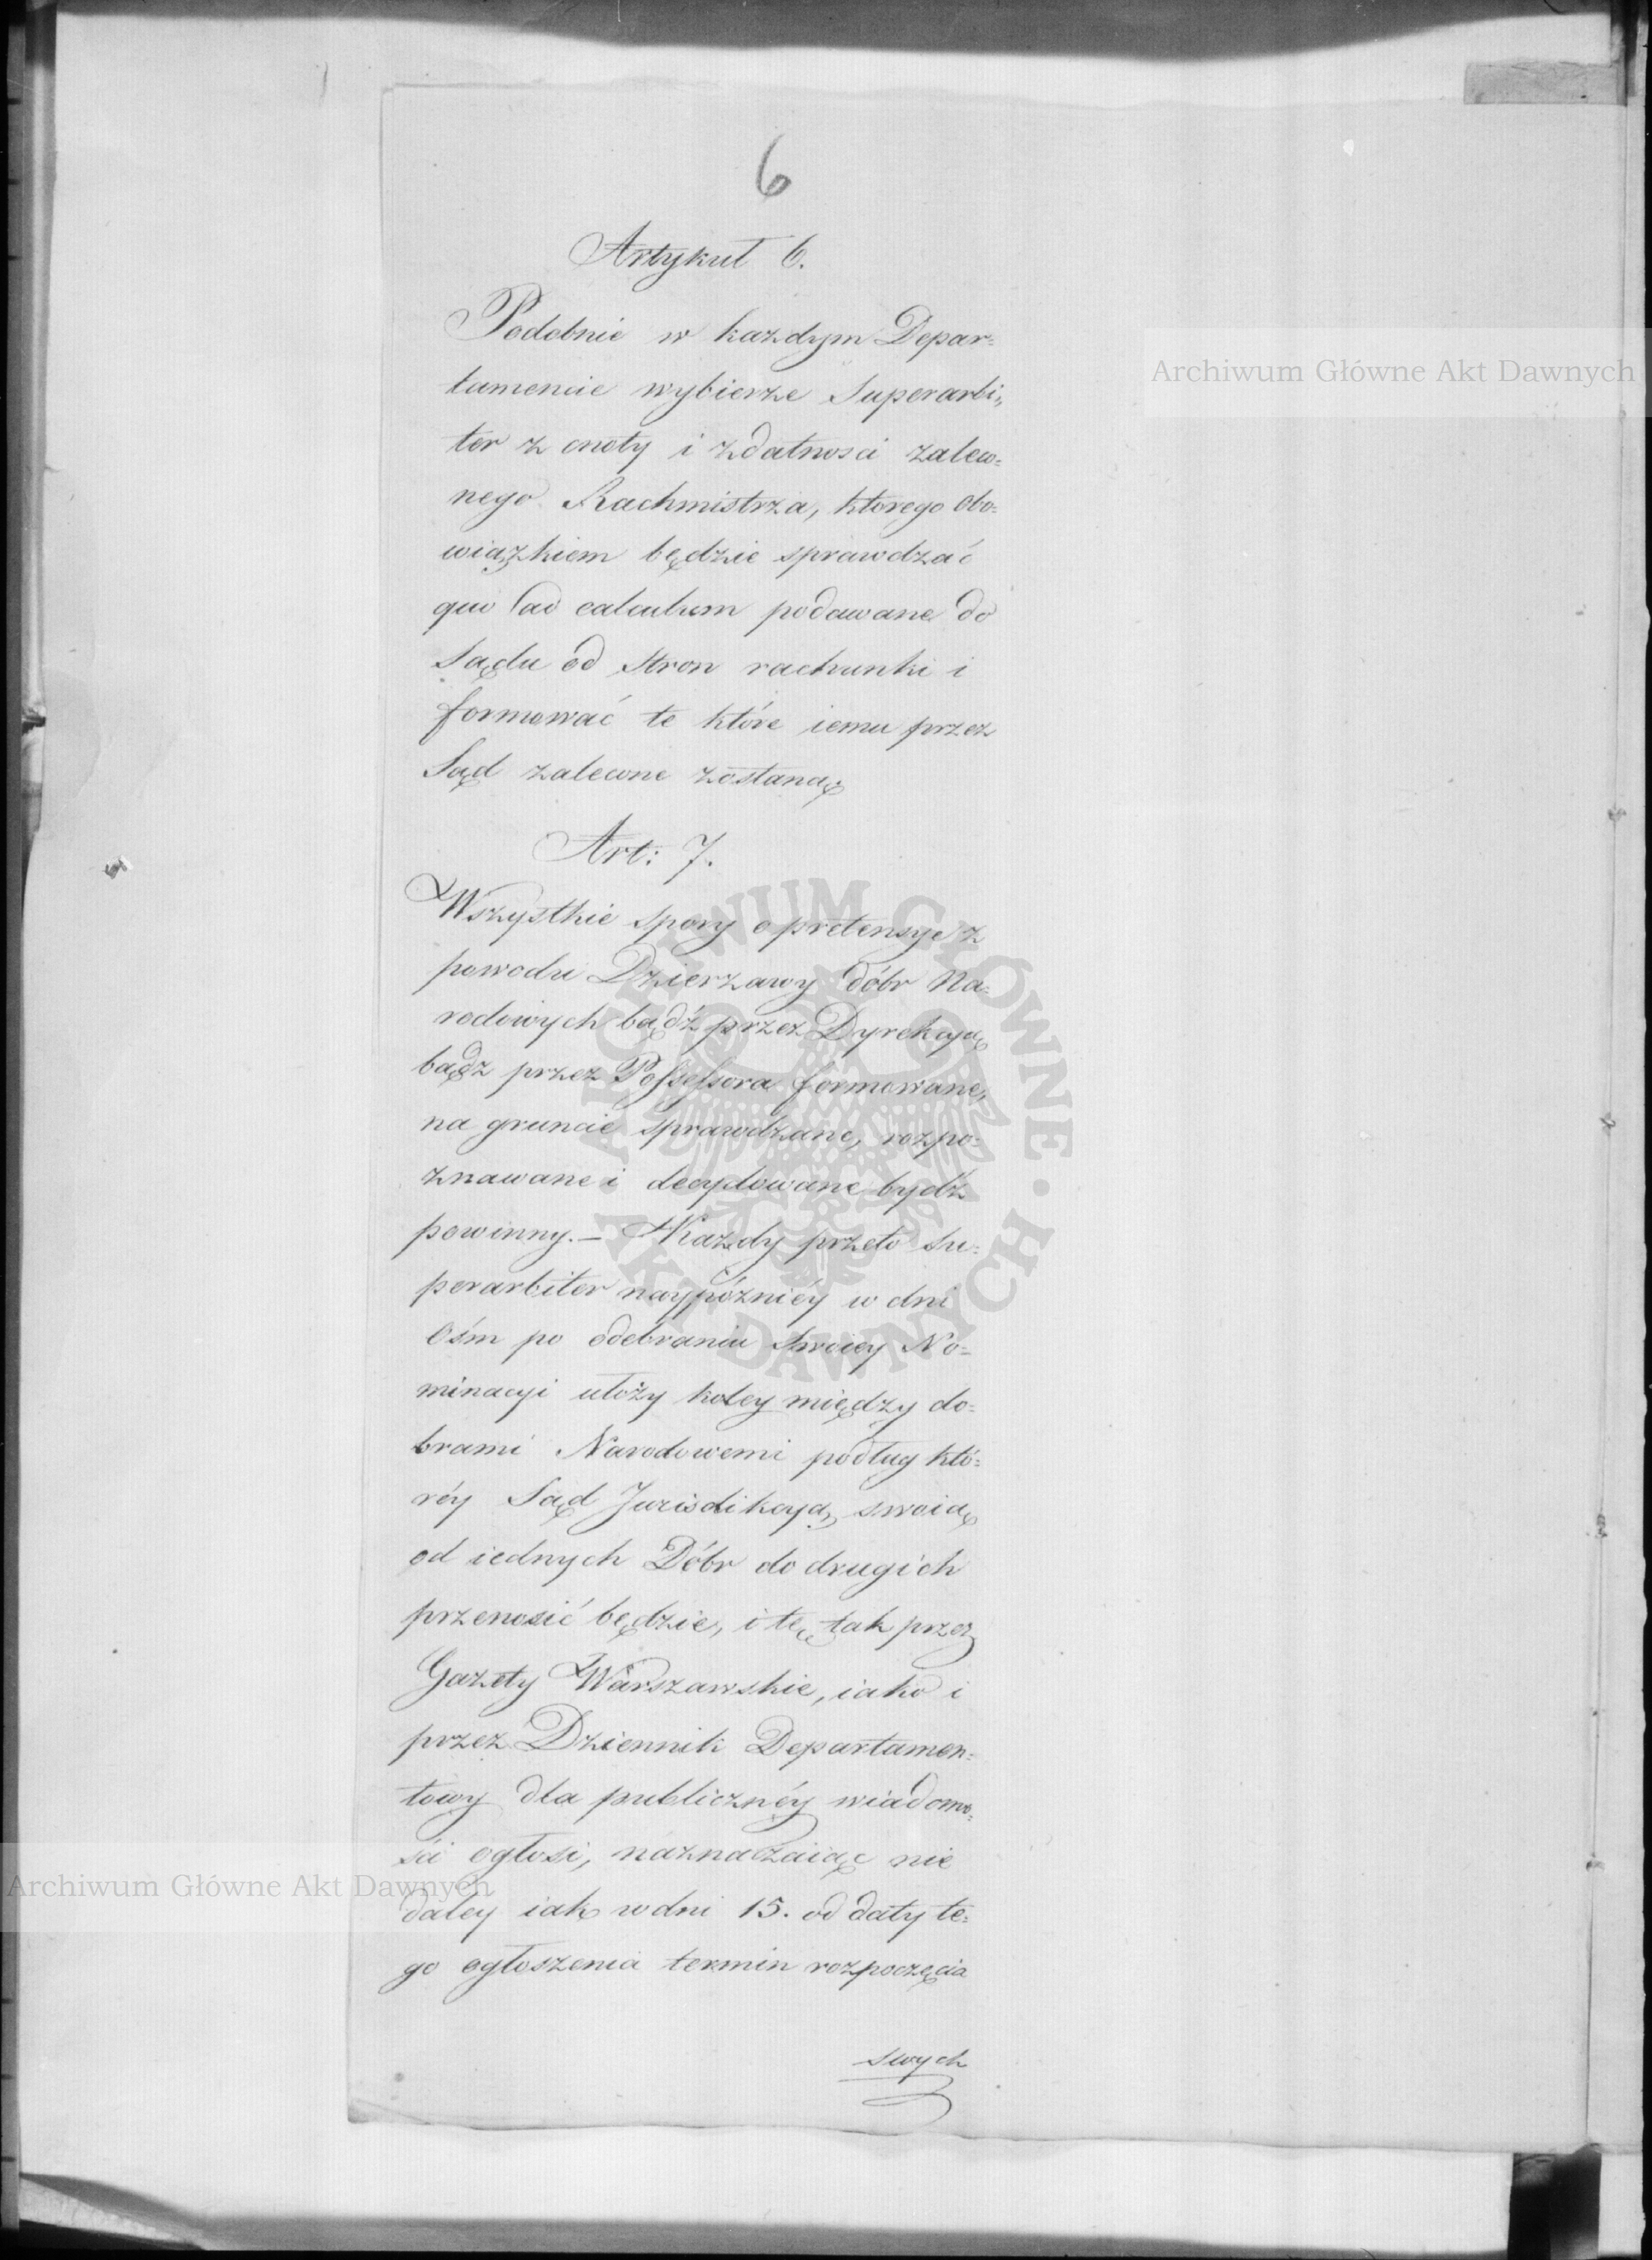 6
Artykuł 6.
Archiwum Główne Akt Dawnych
Podobnie w każdym Depar=
tamencie wybierze Superarbi„
ter z cnoty i zdatnosci zalew=
nego Rachmistrza, ktorego obo=
wiązkiem będzie sprawdzać
quo ad calculum podawane do
Sądu od Stron rachunki i
formować te które iemu przez
Sąd zalecone zostaną.
Art: 7.
Wszystkie spory o pretensye z
powodu Dzierzawy dóbr Na=
rodowych bądź przez Dyrekcyą
bądz przez Possessora formowane,
na gruncie sprawdzane, rozpo=
znawane i decydowane bydź
powinny. – Każdy przeto Su=
perarbiter naypóźniéy w dni
Ośm po odebraniu swoiey No=
minacyi ułoży koley między do=
brami Narodowemi podług któ=
réy Sąd Jurisdikcyą swoią
od iednych Dóbr do drugich
przenosić będzie, i tę tak przez
Gazety Warszawskie, iako i
przez Dziennik Departamen=
towy dla publicznéy wiadomo=
ści ogłosi, naznaczaiąc nie
daley iak w dni 15. od daty te=
go ogłoszenia termin rozpoczęcia
swych
Archiwum Główne Akt Dawnych
ARCHIWUM GŁÓWNE · AKT DAWNYCH ·